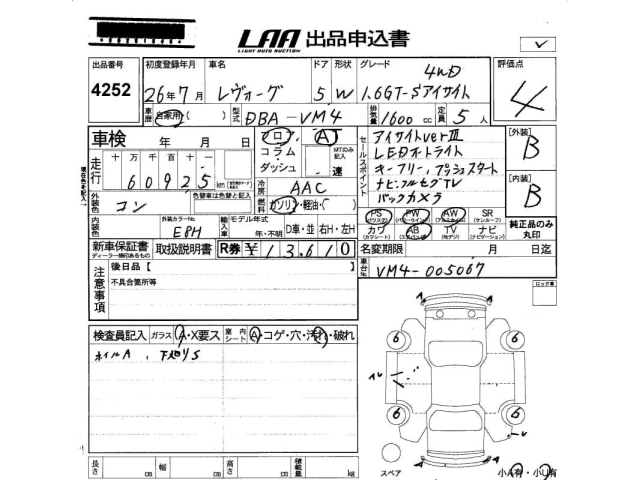 LAA 出品申込書
LIGHT AUTO AUCTION
出品番号 初度登録年月 車名 ドア 形状 グレード 評価点
4252 26年7月 レヴォーグ 5 W 4WD 1.6GT-Sアイサイト 4
車歴 自家用( ) 型式 DBA-VM4 排気量 1600 cc 定員 5 人
車検 年 月 日 フロア・コラム・ダッシュ A MTのみ記入 速
走行 十万千百十一 60925 km
冷房 AAC
外装色 コン 色替車は色替と記入 燃料 ガソリン・軽油・( )
内装色 外装カラーNo. E8H 輸入車 モデル年式 年・不明 D車・並 右H・左H
セールスポイント
アイサイトverⅢ
LEDオートライト
キーフリー、プッシュスタート
ナビ・フルセグTV
バックカメラ
[外装] B
[内装] B
PS PW AW SR
(パワステ) (パワーウインド) (サンルーフ)
カワ AB TV ナビ
(カワシート) (エアバック) (ナビゲーション)
純正品のみ丸印
新車保証書 取扱説明書 R券 ¥13610 名変期限 月 日迄
ディーラー捺印あるもの
車台No. VM4-005067
注意事項 後日品【
不具合箇所等
ロック東
検査員記入 ガラス A・X要ス 室内シート A・コゲ・穴・汚れ・破れ
ホイルA、下廻りS
6 6
6 6
スペア
小A有・小U有
長さ cm 幅 cm 高さ cm 積載量 kg